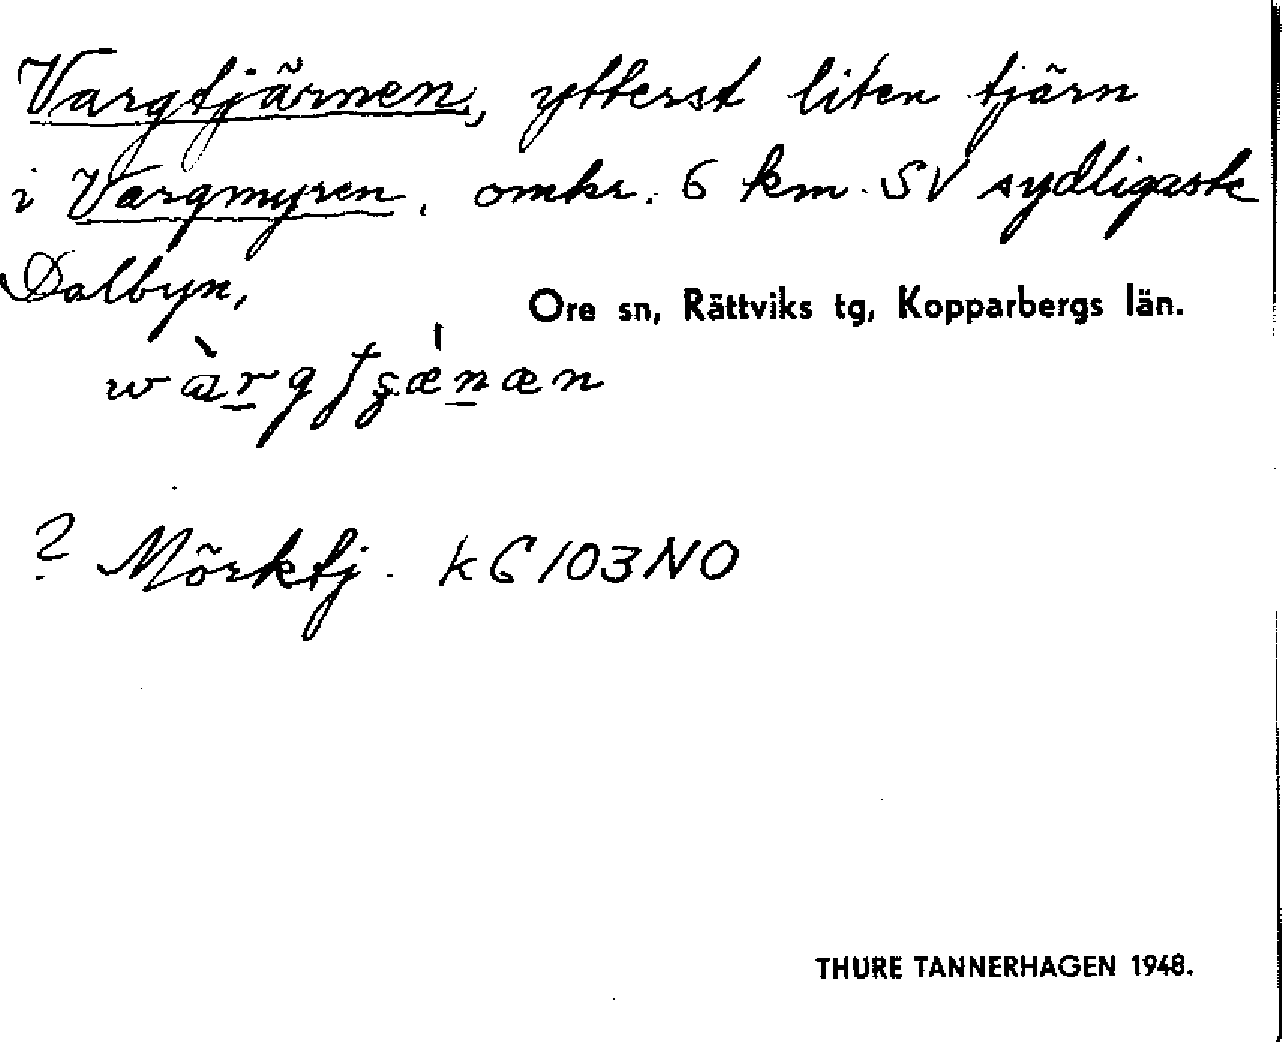 Vargtjärnen, ytterst liten tjärn
i Vargmyren, omkr. 6 km. SV sydligaste
Dalbyn,
Ore sn, Rättviks tg, Kopparbergs län.
? Mörktj. k G 103 NO
THURE TANNERHAGEN 1948.